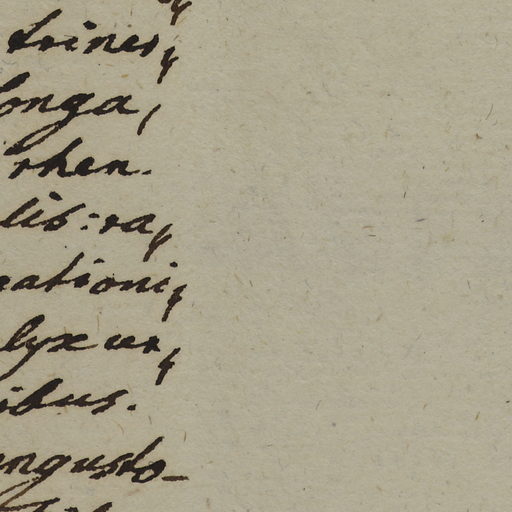 triner,
longa,
rhen.
lis: ra,
nationi,
lyx ur,
ibus.
ngusto-